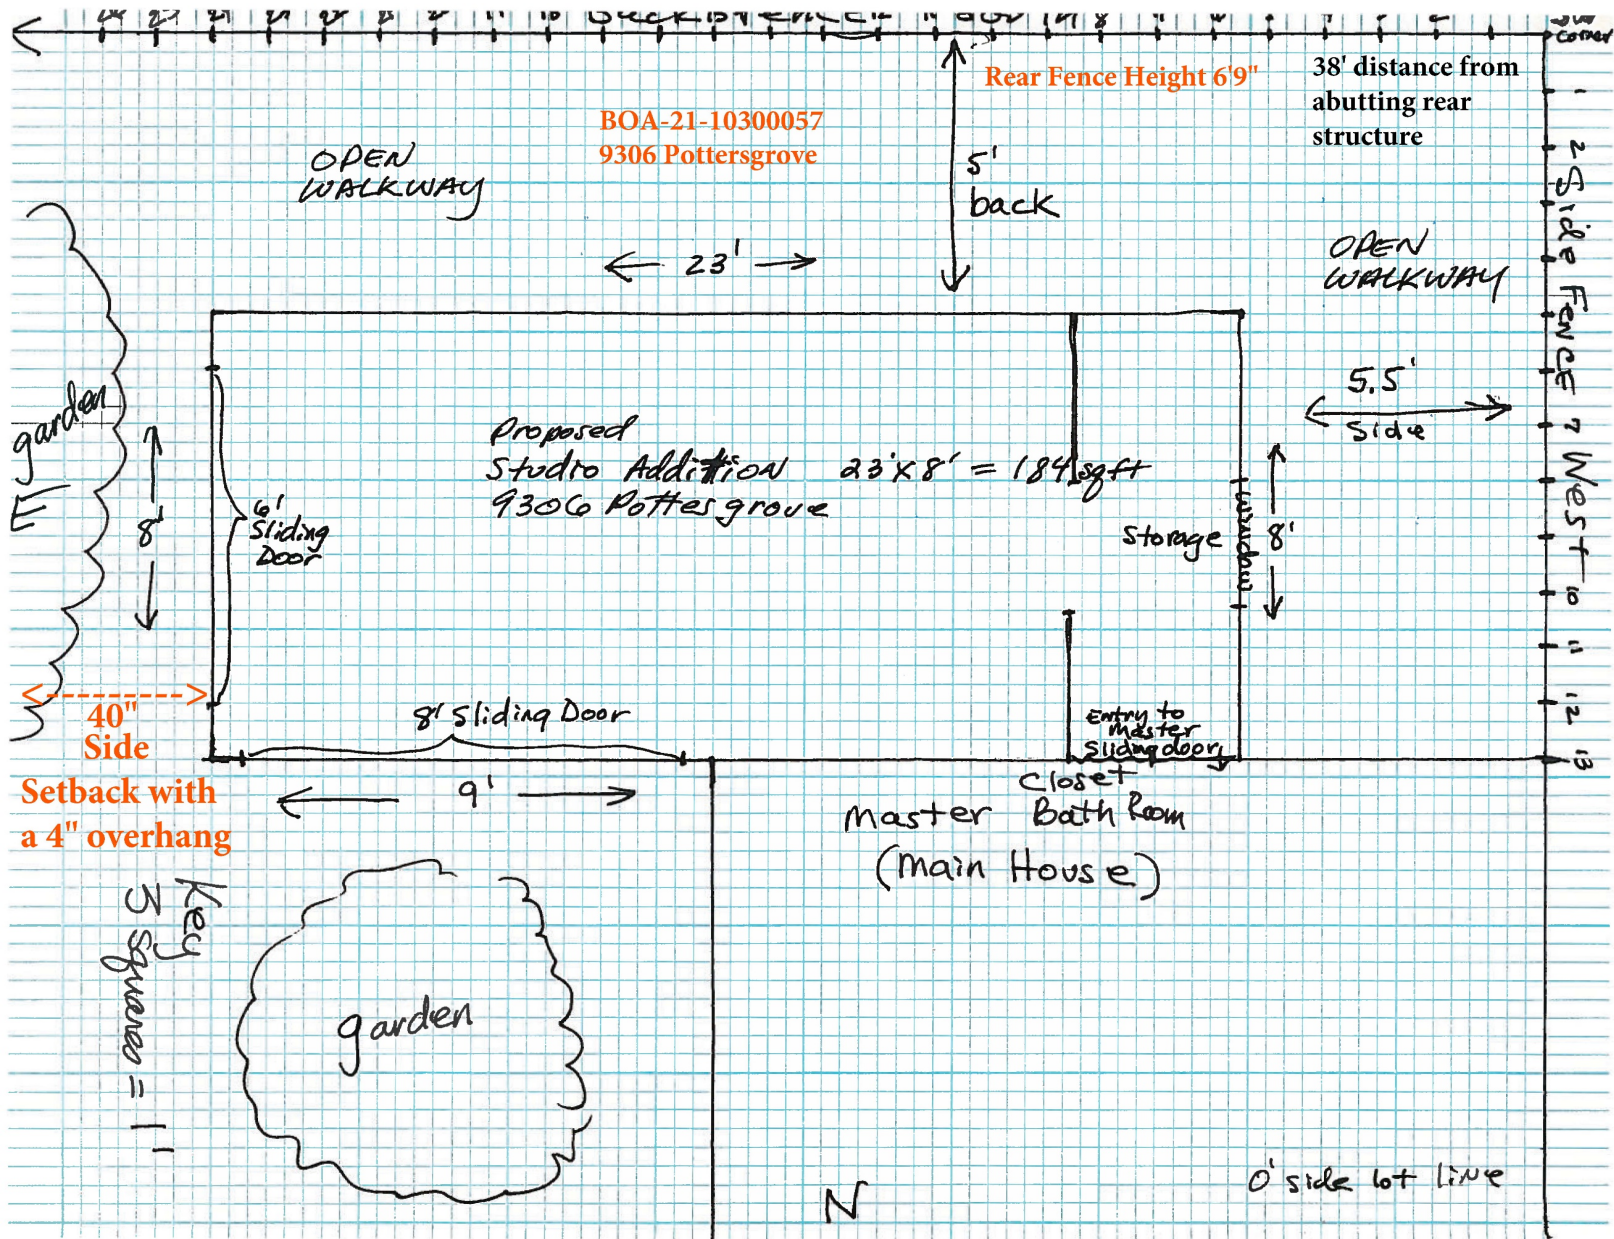 Corner
Rear Fence Height 6'9"
38' distance from
abutting rear
structure
BOA-21-10300057
9306 Pottersgrove
OPEN
WALKWAY
5'
back
23'
OPEN
WALKWAY
1
2
Side Fence
7
West
10
11
12
13
garden
E
8'
6'
Sliding
Door
Proposed
Studio Addition 23'x8' = 184 sqft
9306 Pottesgrove
5.5'
Side
Storage
window
8'
40"
Side
Setback with
a 4" overhang
8' Sliding Door
Entry to
Master
Sliding door
9'
Closet
Master Bath Room
(Main House)
Key
5 squares = 1'
garden
N
0' side lot line